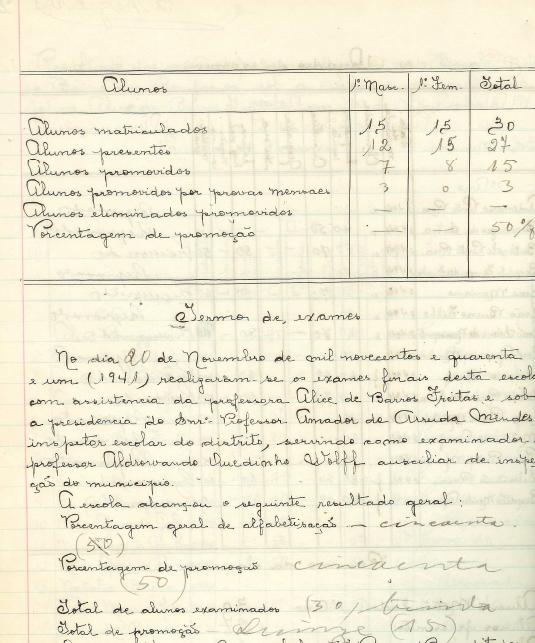 Alunos 1º Masc. 1º Fem. Total
Alunos matriculados 15 15 30
Alunos presentes 12 15 27
Alunos promovidos 7 8 15
Alunos promovidos por provas mensaes 3 0 3
Alunos eliminados promovidos — — —
Porcentagem de promoção - — 50%
Termos de exames
No dia 20 de Novembro de mil novecentos e quarenta
e um (1941) realizaram se os exames finais desta escola
com assistencia da professora Alice de Barros Freitas e sob
a presidencia do Snr. Professor Amador de Arruda Mendes
inspetor escolar do distrito, servindo como examinador
professor Aldrovando Wolff auxiliar de inspe
ção do municipio.
A escola alcançou o seguinte resultado geral:
Porcentagem geral de alfabetisação — cincoenta.
(50)
Porcentagem de promoção cincoenta
(50)
Total de alunos examinados (30) trinta
Total de promoção Quinze (15)